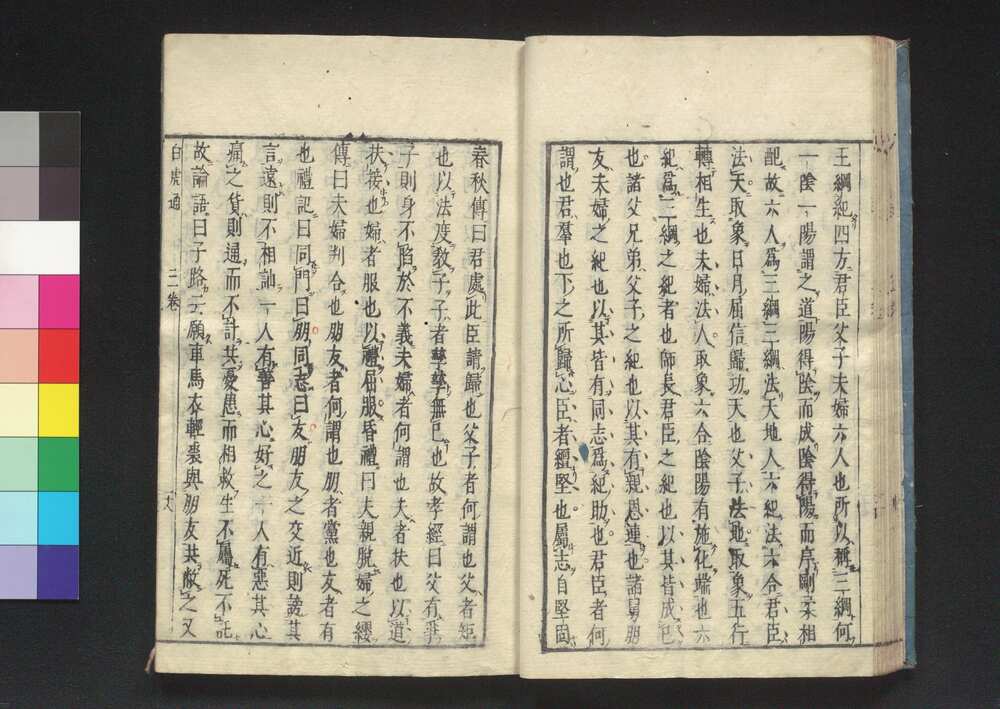 王綱紀四方君臣父子夫婦六人也所以稱三綱何
一陰一陽謂之道陽得陰而成陰得陽而序剛柔相
配故六人爲三綱三綱法天地人六紀法六合君臣
法天取象日月屈信歸功天也父子法地取象五行
轉相生也夫婦法人取象六合陰陽有施化端也六
紀爲三綱之紀者也師長君臣之紀也以其皆成已
也諸父兄弟父子之紀也以其有親恩連也諸舅朋
友夫婦之紀也以其皆有同志爲紀助也君臣者何
謂也君羣也下之所歸心臣者繵堅也屬志自堅固
春秋傳曰君處此臣請歸也父子者何謂也父者矩
也以法度敎子子者孳孳無已也故孝經曰父有爭
子則身不陷於不義夫婦者何謂也夫者扶也以道
扶接也婦者服也以禮屈服昏禮曰夫親脫婦之纓
傳曰夫婦判合也朋友者何謂也朋者黨也友者有
也禮記曰同門曰朋同志曰友朋友之交近則謗其
言遠則不相訕一人有善其心好之一人有惡其心
痛之貨則通而不計共憂患而相救生不屬死不託
故論語曰子路云願車馬衣輕裘與朋友共敝之又
白虎通 三卷